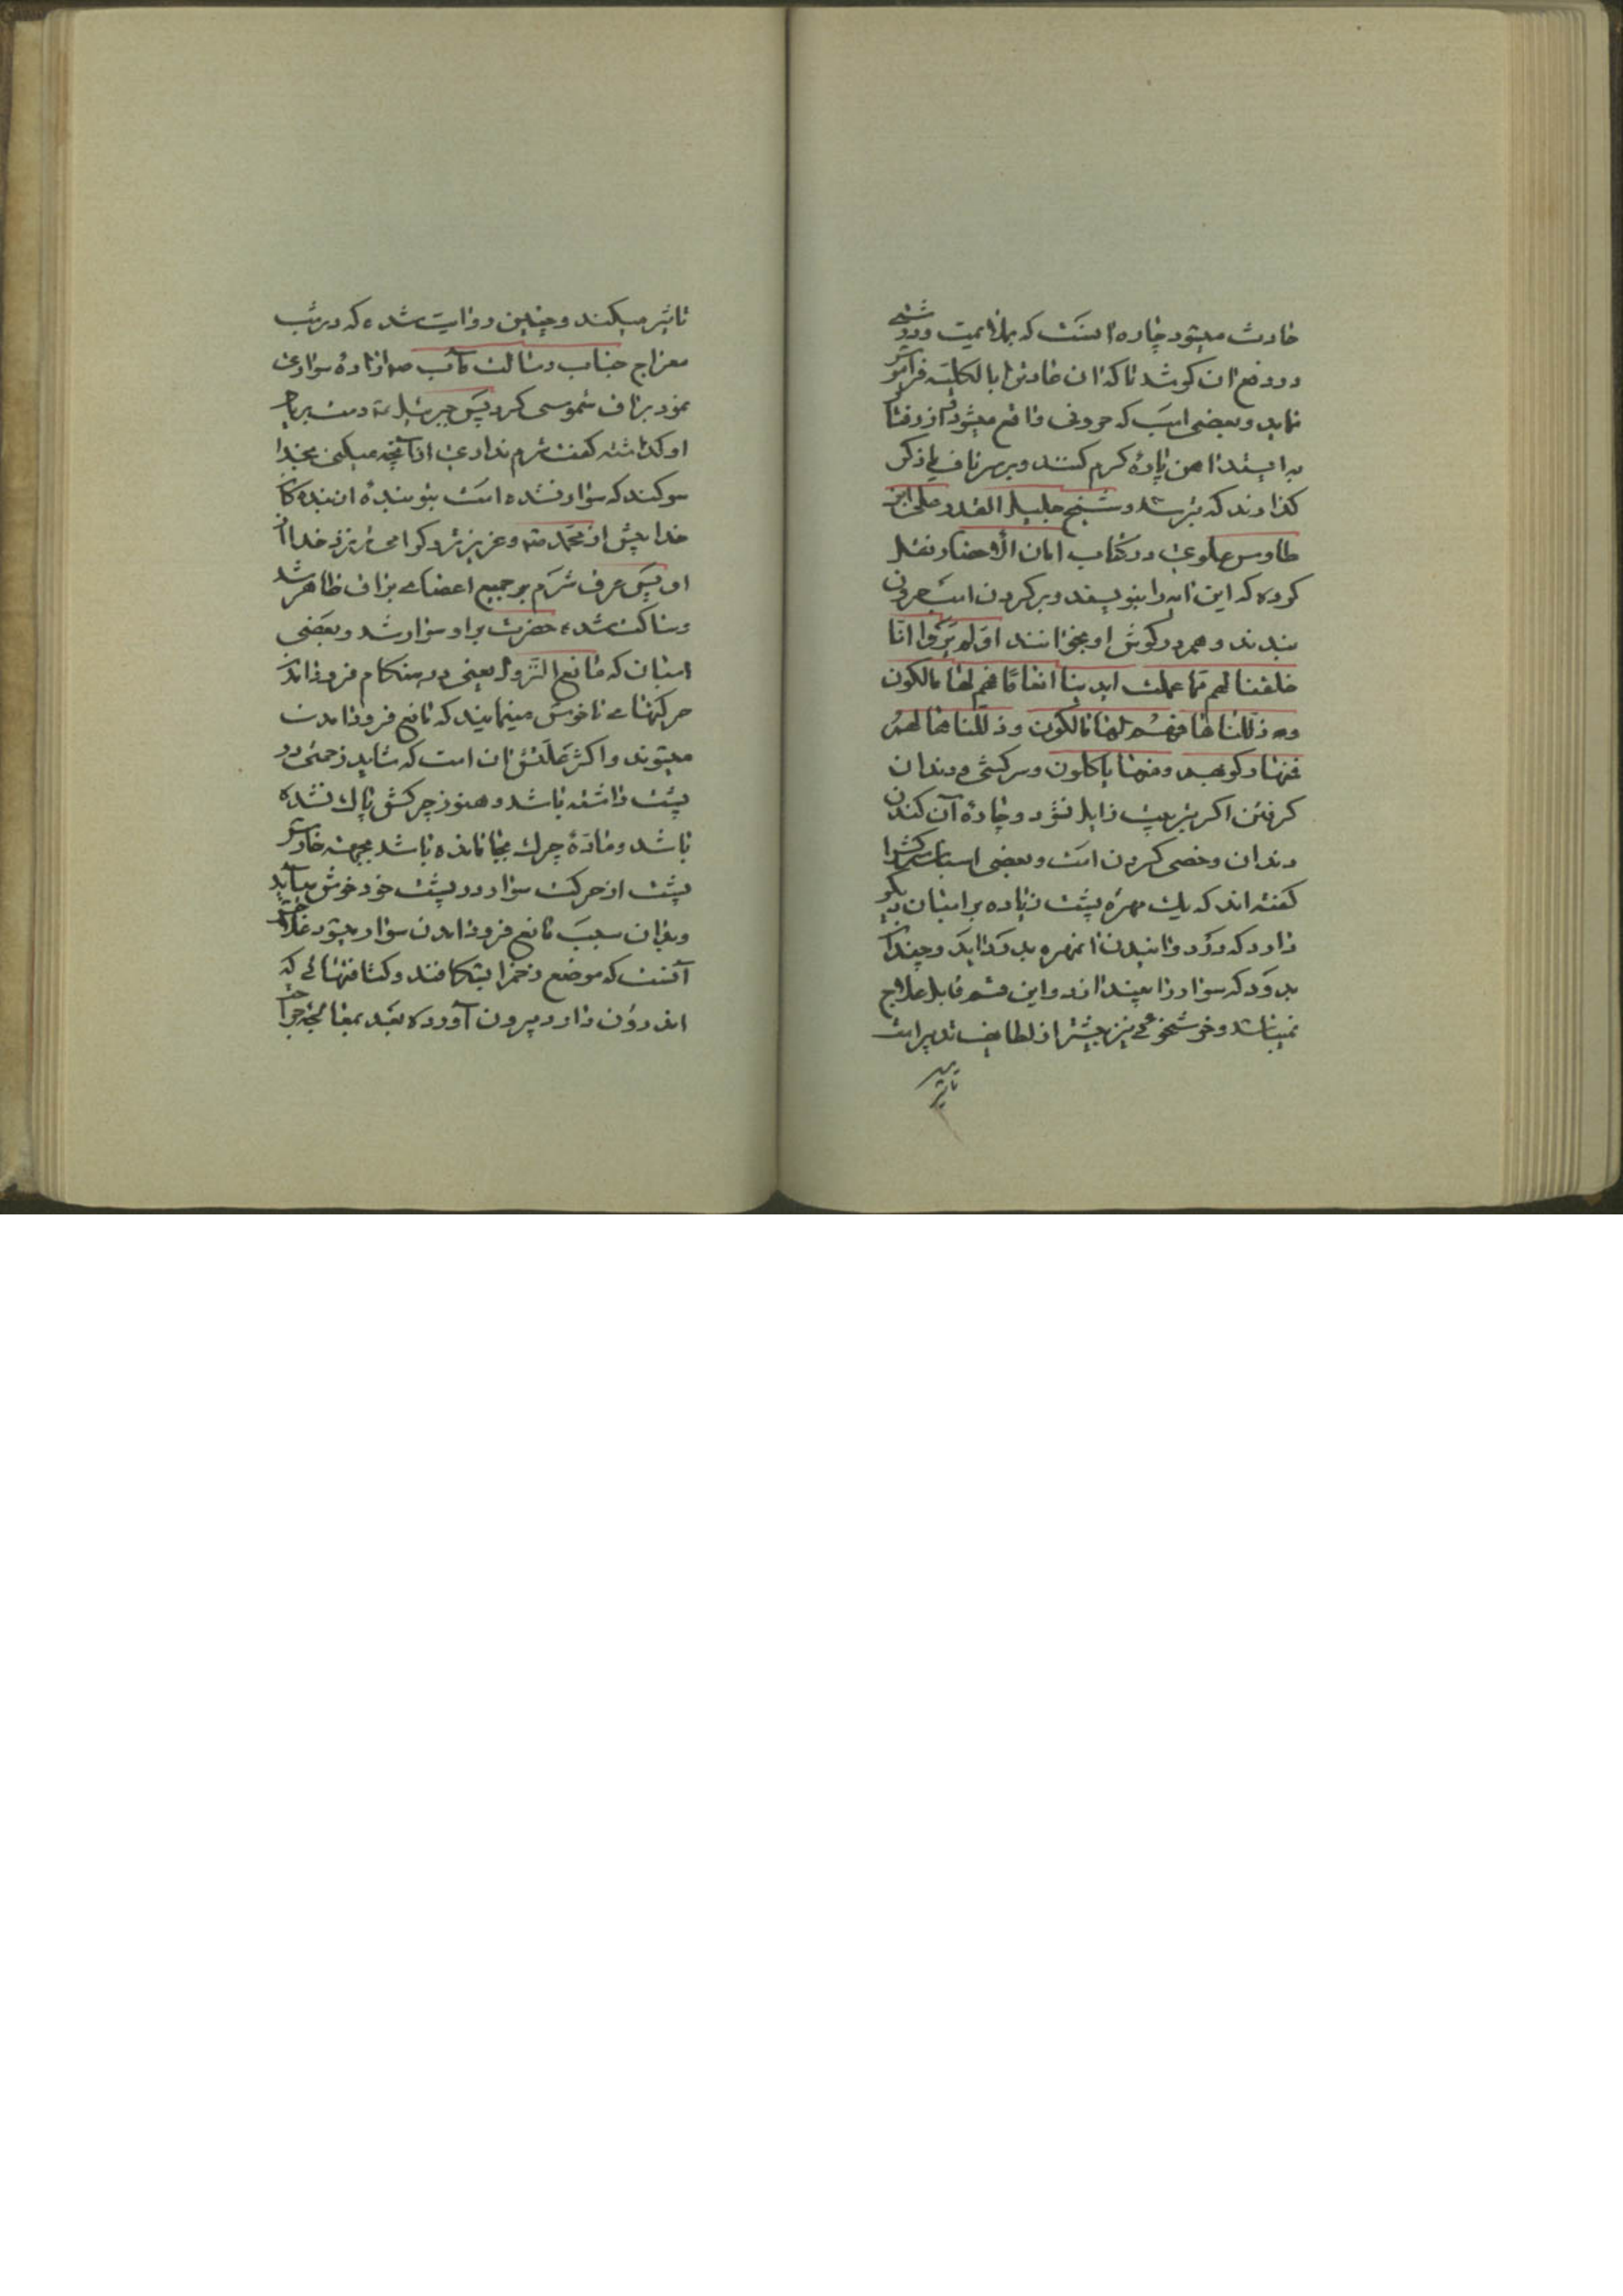 حادث میشود چاره انست که بملایمت ودرشتی
در رفع ان کوشد تا که ان عادترا بالکلیه فراموش
نماید وبعضی است که حرونی واقع میشود از رفتار
به ایستد اهن پارهٔ کرم کنند وبر سر ناف یا ذکر
کذارند که بترسد و شیخ جلیل القدر علی ابن
طاوس علوی در کتاب امان الأخطار نقل
کرده که این ایه را بنویسند وبر کردن اسب حرون
بندند وهم در کوش او بخوانند اولم یروا انا
خلقنا لهم مما عملت ایدینا انعاما فهم لها مالکون
وذللناها فهم لها مالکون وذللناها لهم
فمنها رکوبهم ومنها یاکلون وسرکشی ودندان
کرفتن اکر بتربیت زایل نشود وچارهٔ آن کندن
دندان وخصی کردن است وبعضی اسبان سرکش را
کفته اند که یک مهره پشت زیاده بر اسبان دیکر
دارد که در دوانیدن انمهره بدرد اید وچندان
بدود که سوار را بیندازد واین قسم قابل علاج
نمیباشد وخوشخوئی نیز بیشتر از لطایف تدبیر است
تاثیر
تاثیر میکند وچنین روایت شده که در شب
معراج جناب رسالت مآب ص ارادهٔ سواری
نمود براق شموسی کرد پس جبرئیل ع دست بر یال
او کذاشته کفت شرم نداری از آنچه میکنی بخدا
سوکند که سوار نشده است بتو بندهٔ از بندکان
خدا پیش از محمد ص وعزیزتر وکرامی تر نزد خدا از
او پس عرق شرم بر جمیع اعضای براق ظاهر شد
وساکت شده حضرت بر او سوار شد وبعضی
اسبان که مانع النزول یعنی در هنکام فرود آمدن
حرکتهای ناخوش مینمایند که مانع فرود امدن
میشوند واکثر علتش ان است که شاید زخمی در
پشت داشته باشد وهنوز چرکش پاک نشده
باشد ومادهٔ چرک بجا مانده باشد بجهته خارش
پشت از حرکت سوار در پشت خود خوش میآید
وبدان سبب مانع فرود امدن سوار میشود علاجش
آنست که موضع زخم را بشکافند وکثافتهائی که
اندرون دارد بیرون آورده بعد بمعالجهٔ جراحت